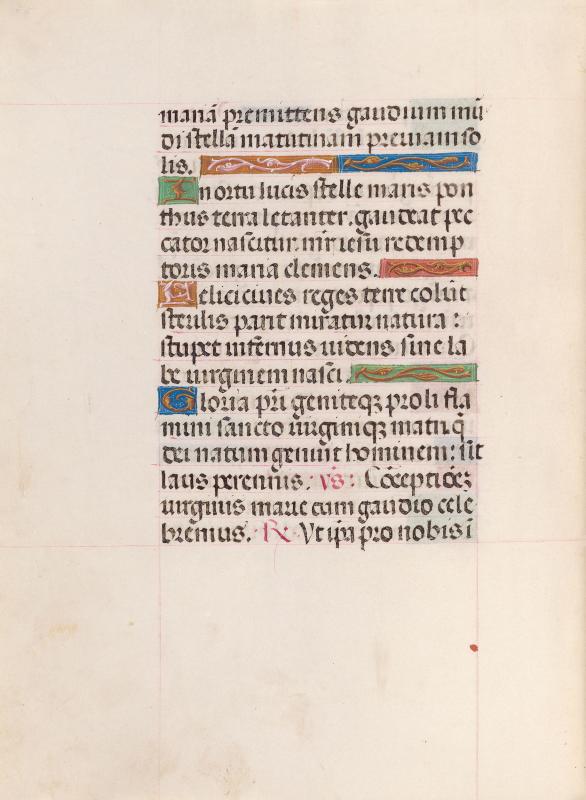 mariā premittens gaudium mū
di stellā matutinam previam so
lis.
In ortu lucis stelle maris pon
thus terra letanter. gaudeat pec
cator nascitur. mr̄ iesu redemp
toris maria clemens.
Celici cives reges terre colūt
sterilis parit miratur natura :
stupet infernus videns sine la
be virginem nasci.
Gloria pr̄i geniteqȝ proli fla
mini sancto virginiqȝ matri. q̄
dei natum genuit hominem : sit
laus perennis. vs: Cōceptiōeȝ
virginis marie cum gaudio cele
bremus. R Ut ip̄a pro nobis ī